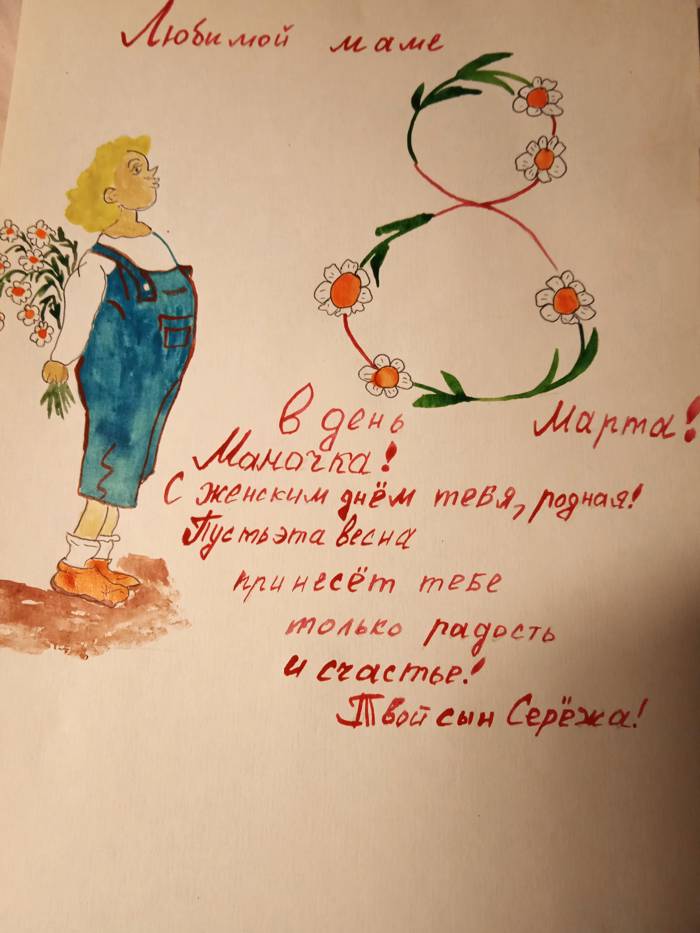 Любимой маме
8
В день Марта!
Мамочка!
С женским днём тебя, родная!
Пусть эта весна
принесёт тебе
только радость
и счастье!
Твой сын Серёжа!